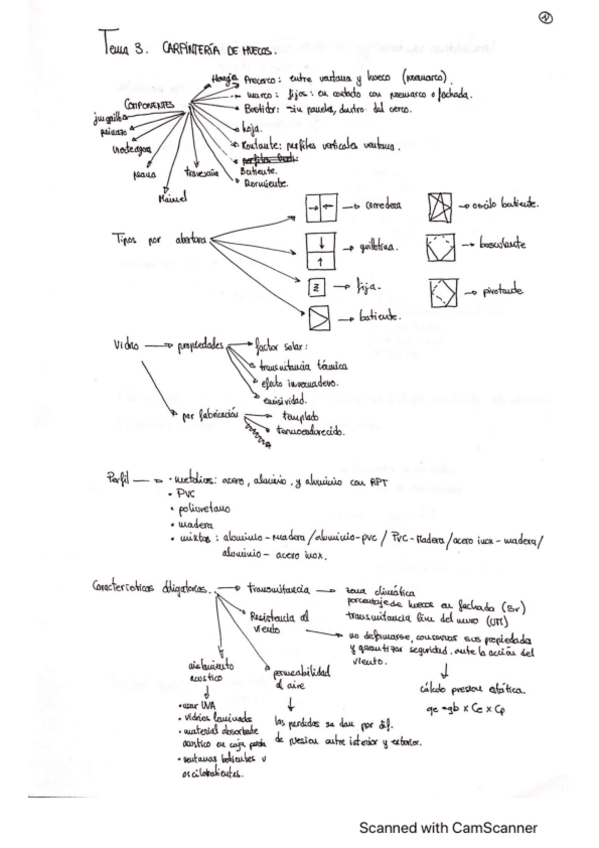 Tema 3. CARPINTERÍA DE HUECOS.
COMPONENTES
Precerco: entre ventana y hueco (premarco).
marco: fijos: en contacto con premarco o fachada.
Bastidor: sin paneles, dentro del cerco.
hoja.
Montante: perfiles verticales ventana.
Batiente.
Durmiente.
junquillo
peinazo
travesaño
Mainel
Tipos por abertura
corredera
guillotina.
fija.
batiente.
oscilo batiente.
basculante
pivotante
Vidrio → propiedades
factor solar:
transmitancia térmica
efecto invernadero.
emisividad.
por fabricación
templado
termoendurecido.
Perfil → • metálicos: acero, aluminio, y aluminio con RPT
• PVC
• poliuretano
• madera
• mixtos: aluminio-madera/aluminio-pvc/ PVC-Madera/acero inox-madera/
aluminio-acero inox.
Características obligatorias.
Transmitancia → zona climática
porcentaje de huecos en fachada
transmitancia lim del muro
Resistencia al
viento
no deformarse, conservar sus propiedades
y garantizar seguridad, ante la acción del
viento.
cálculo presion estática.
qe = qb x Ce x Cp
permeabilidad
al aire
las perdidas se dan por dif.
de presion entre interior y exterior.
aislamiento
acústico
• usar UVA
• vidrios laminados
• material absorbente
acústico en caja
• ventanas batientes u
oscilobatientes.
Scanned with CamScanner